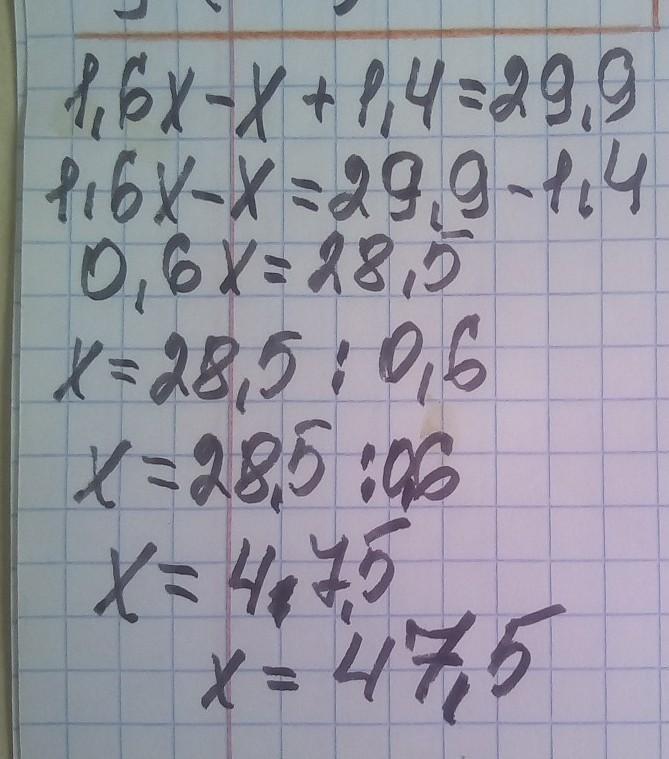 1,6x-x+1,4=29,9
1,6x-x=29,9-1,4
0,6x=28,5
x=28,5:0,6
x=28,5:0,6
x=47,5
x=47,5